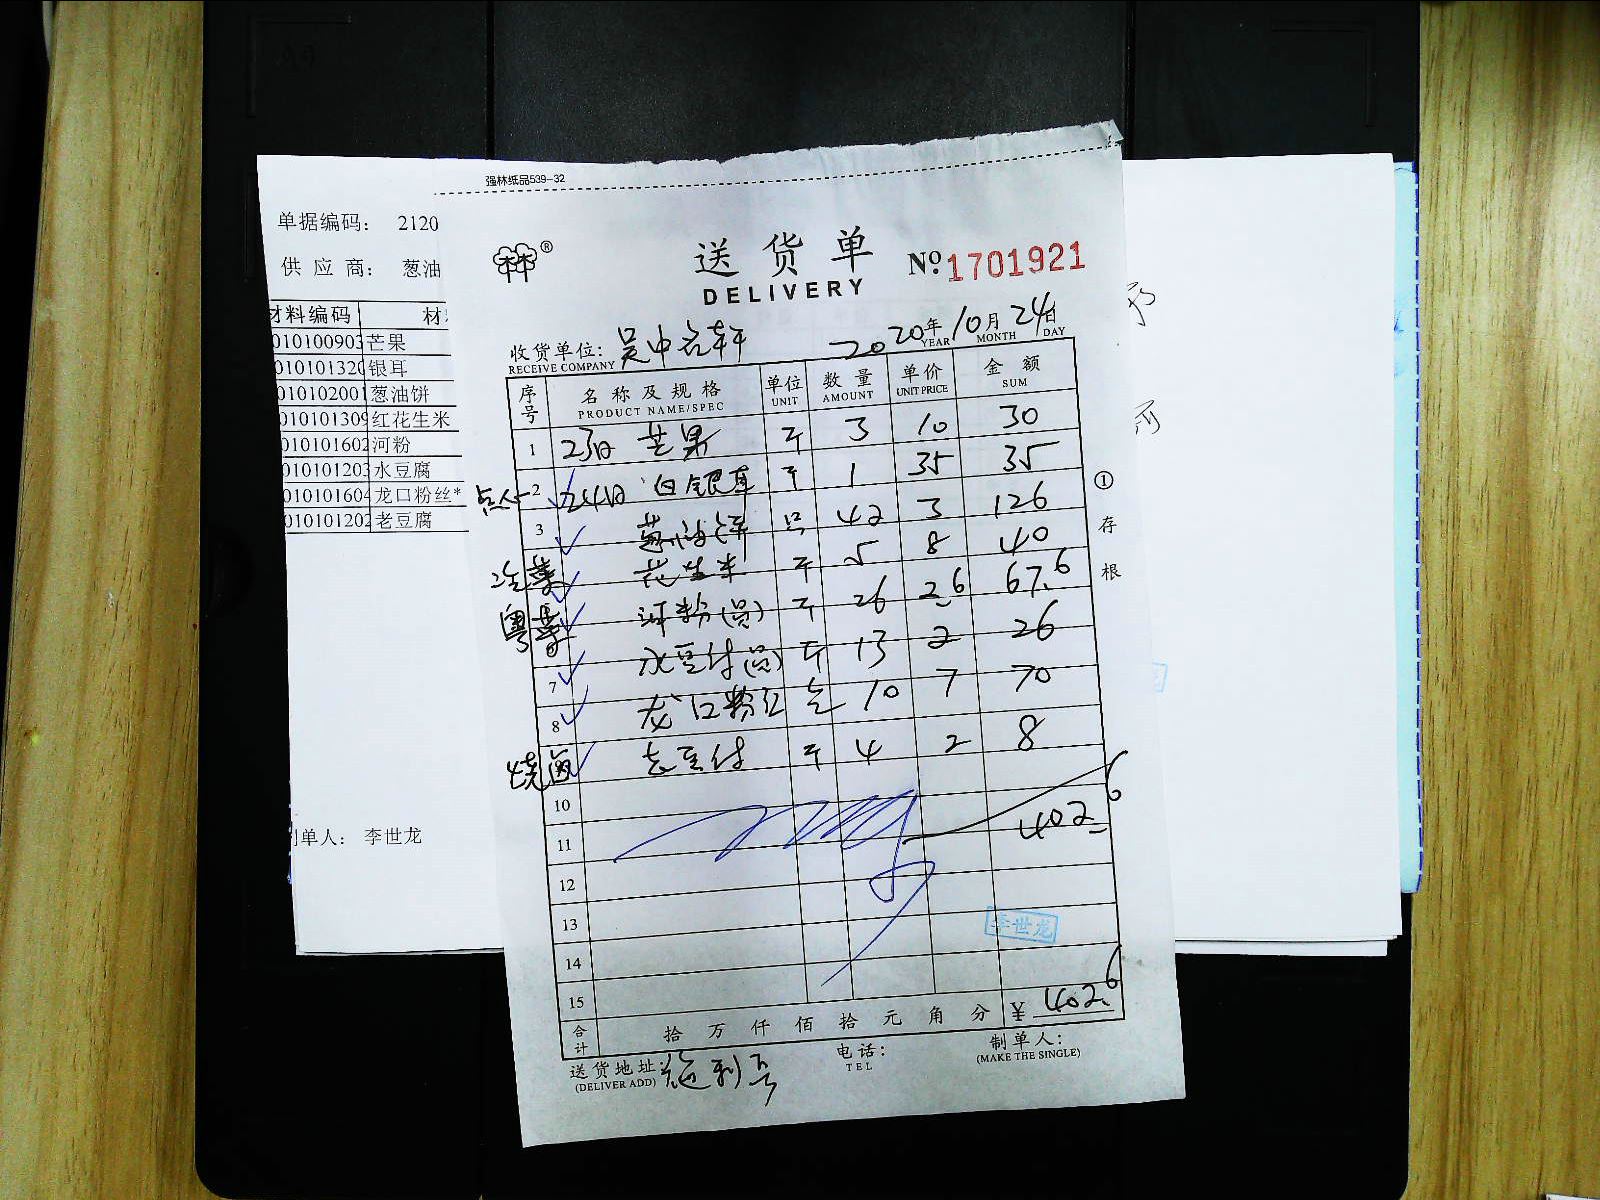 强林纸品539-32
单据编码： 2120
供 应 商： 葱油
材料编码 材
010100903 芒果
010101320 银耳
010102001 葱油饼
010101309 红花生米
010101602 河粉
010101203 水豆腐
010101604 龙口粉丝*
010101202 老豆腐
制单人： 李世龙
林林®
送货单
DELIVERY
№ 1701921
收货单位： 吴中
RECEIVE COMPANY
2020年10月24日
YEAR MONTH DAY
序号 名称及规格 单位 数量 单价 金额
PRODUCT NAME/SPEC UNIT AMOUNT UNIT PRICE SUM
1 23日 芒果 斤 3 10 30
点心 2 24日 白银耳 斤 1 35 35
3 葱油饼 只 42 3 126
冷菜 花生米 斤 5 8 40
粤菜 河粉(员) 斤 26 2.6 67.6
7 水豆付(员) 斤 13 2 26
8 龙口粉丝 包 10 7 70
烧卤 老豆付 斤 4 2 8
10
11 402.6
12
13 李世龙
14
15
合计 拾 万 仟 佰 拾 元 角 分 ¥ 402.6
送货地址：
(DELIVER ADD)
电话：
TEL
制单人：
(MAKE THE SINGLE)
① 存根